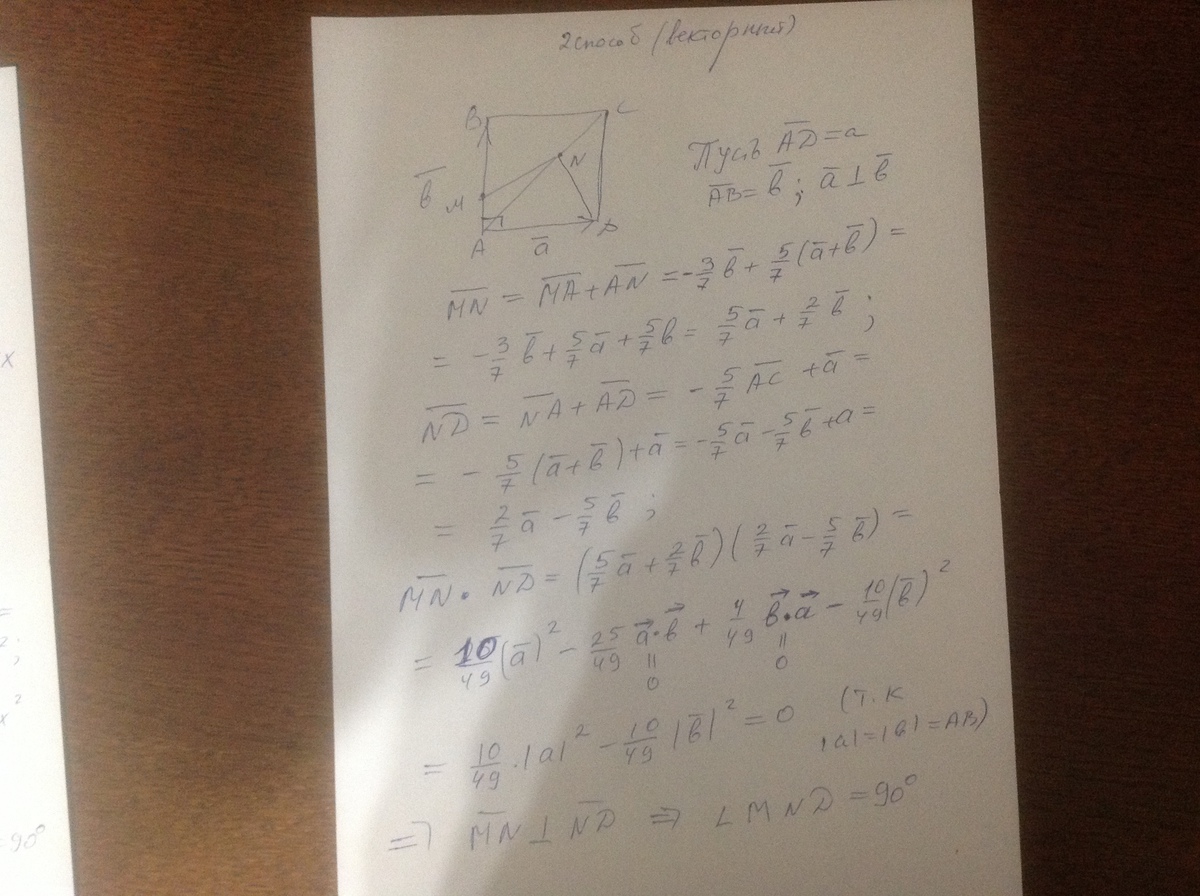 2 способ (векторный)
B C
N
b̅ M
A D
a̅
Пусть A̅D̅ = a
A̅B̅ = b̅ ; a̅ ⊥ b̅
M̅N̅ = M̅A̅ + A̅N̅ = -3/7 b̅ + 5/7 (a̅ + b̅) =
= -3/7 b̅ + 5/7 a̅ + 5/7 b = 5/7 a̅ + 2/7 b̅ ;
N̅D̅ = N̅A̅ + A̅D̅ = - 5/7 A̅C̅ + a̅ =
= - 5/7 (a̅ + b̅) + a̅ = -5/7 a̅ - 5/7 b̅ + a =
= 2/7 a̅ - 5/7 b̅ ;
M̅N̅ · N̅D̅ = (5/7 a̅ + 2/7 b̅) (2/7 a̅ - 5/7 b̅) =
= 10/49 (a̅)² - 25/49 a⃗·b⃗ + 4/49 b⃗·a⃗ - 10/49 (b̅)²
|| ||
0 0
= 10/49 · |a|² - 10/49 |b̅|² = 0 (т.к
|a| = |b| = AB)
=> M̅N̅ ⊥ N̅D̅ => ∠MND = 90°
x
=
2;
x²
=90°